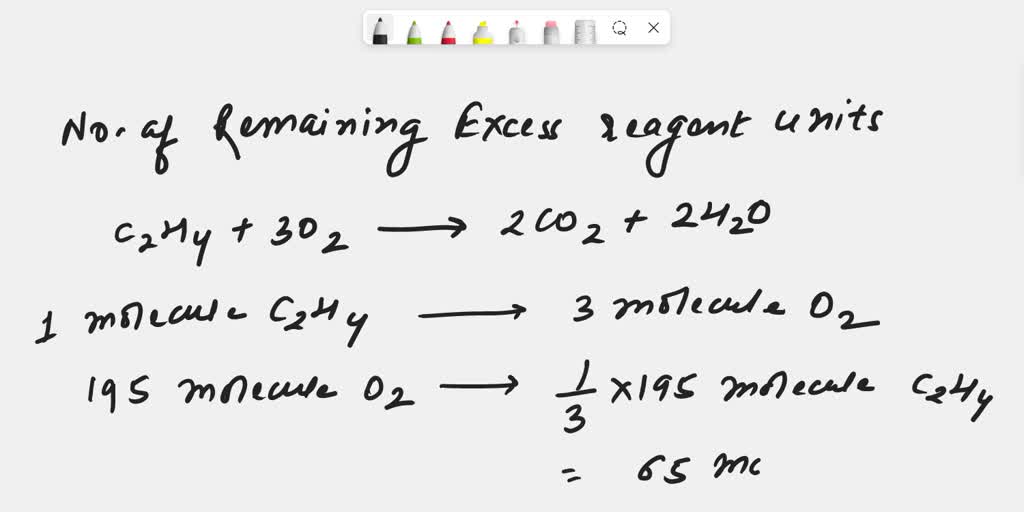 No. of Remaining Excess reagent units
C2H4 + 3O2 → 2CO2 + 2H2O
1 molecule C2H4 → 3 molecule O2
195 molecule O2 → 1/3 × 195 molecule C2H4
= 65 mo